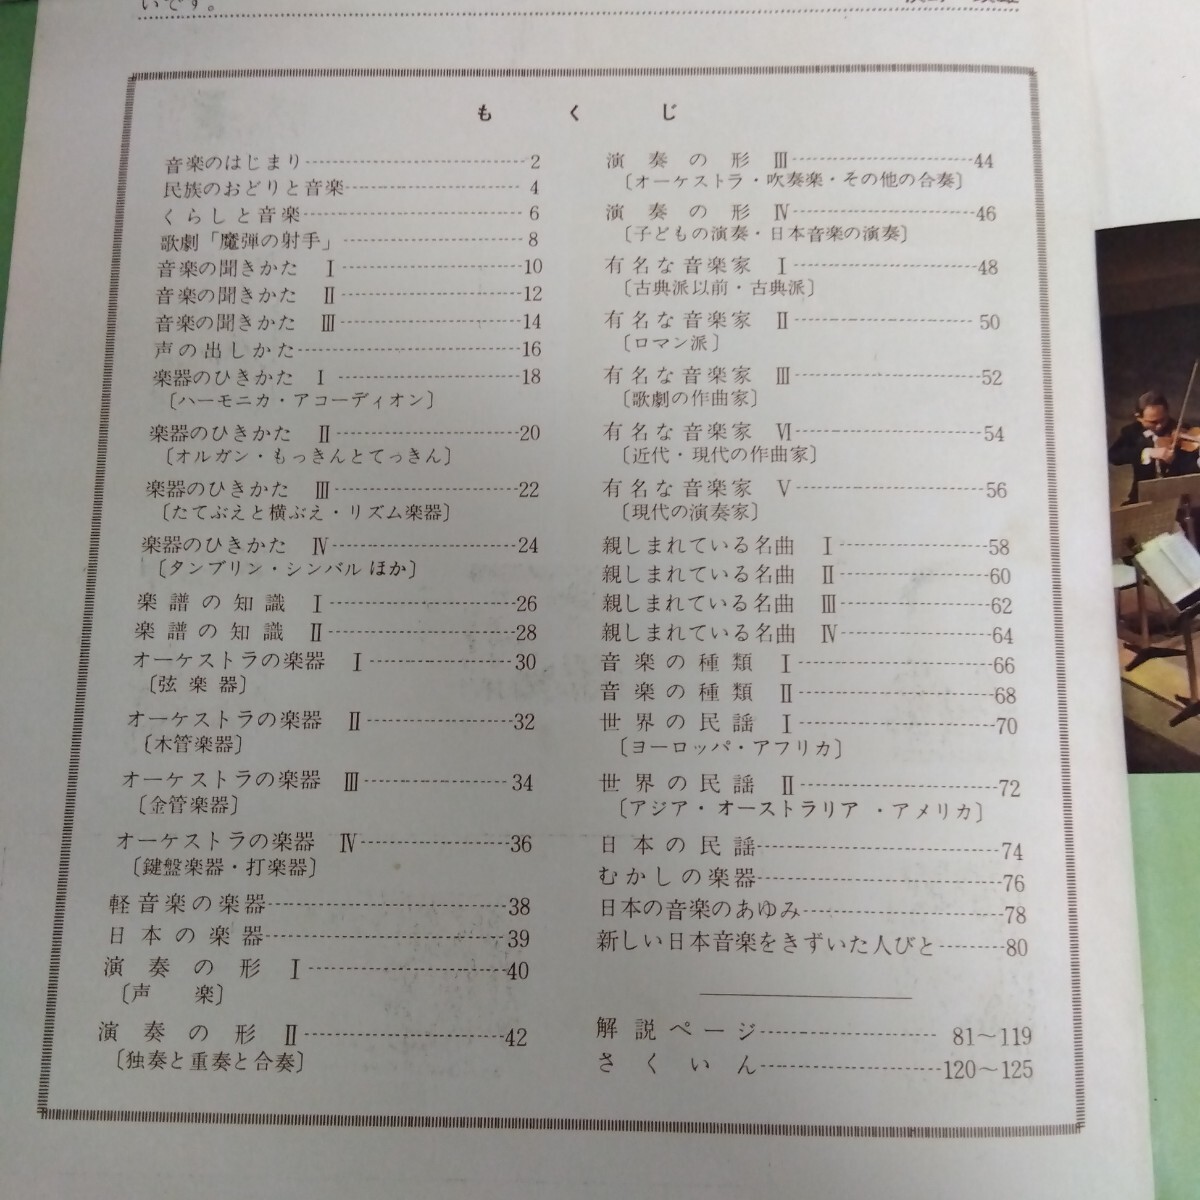 いです。
もくじ
音楽のはじまり 2
民族のおどりと音楽 4
くらしと音楽 6
歌劇「魔弾の射手」 8
音楽の聞きかた Ⅰ 10
音楽の聞きかた Ⅱ 12
音楽の聞きかた Ⅲ 14
声の出しかた 16
楽器のひきかた Ⅰ 18
〔ハーモニカ・アコーディオン〕
楽器のひきかた Ⅱ 20
〔オルガン・もっきんとてっきん〕
楽器のひきかた Ⅲ 22
〔たてぶえと横ぶえ・リズム楽器〕
楽器のひきかた Ⅳ 24
〔タンブリン・シンバル ほか〕
楽譜の知識 Ⅰ 26
楽譜の知識 Ⅱ 28
オーケストラの楽器 Ⅰ 30
〔弦楽器〕
オーケストラの楽器 Ⅱ 32
〔木管楽器〕
オーケストラの楽器 Ⅲ 34
〔金管楽器〕
オーケストラの楽器 Ⅳ 36
〔鍵盤楽器・打楽器〕
軽音楽の楽器 38
日本の楽器 39
演奏の形 Ⅰ 40
〔声楽〕
演奏の形 Ⅱ 42
〔独奏と重奏と合奏〕
演奏の形 Ⅲ 44
〔オーケストラ・吹奏楽・その他の合奏〕
演奏の形 Ⅳ 46
〔子どもの演奏・日本音楽の演奏〕
有名な音楽家 Ⅰ 48
〔古典派以前・古典派〕
有名な音楽家 Ⅱ 50
〔ロマン派〕
有名な音楽家 Ⅲ 52
〔歌劇の作曲家〕
有名な音楽家 Ⅵ 54
〔近代・現代の作曲家〕
有名な音楽家 Ⅴ 56
〔現代の演奏家〕
親しまれている名曲 Ⅰ 58
親しまれている名曲 Ⅱ 60
親しまれている名曲 Ⅲ 62
親しまれている名曲 Ⅳ 64
音楽の種類 Ⅰ 66
音楽の種類 Ⅱ 68
世界の民謡 Ⅰ 70
〔ヨーロッパ・アフリカ〕
世界の民謡 Ⅱ 72
〔アジア・オーストラリア・アメリカ〕
日本の民謡 74
むかしの楽器 76
日本の音楽のあゆみ 78
新しい日本音楽をきずいた人びと 80
解説ページ 81〜119
さくいん 120〜125